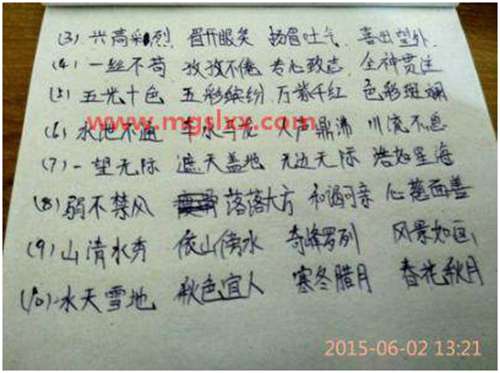 (3) 兴高彩烈 眉开眼笑 扬眉吐气 喜出望外
(4) 一丝不苟 孜孜不倦 专心致志 全神贯注
(5) 五光十色 五彩缤纷 万紫千红 色彩斑斓
(6) 水泄不通 车水马龙 人声鼎沸 川流不息
www.mgslxz.com
(7) 一望无际 遮天盖地 无边无际 浩如星海
(8) 弱不禁风 落落大方 和谒可亲 心慈面善
(9) 山清水秀 依山傍水 奇峰罗列 风景如画
(10) 水天雪地 秋色宜人 寒冬腊月 春花秋月
2015-06-02 13:21